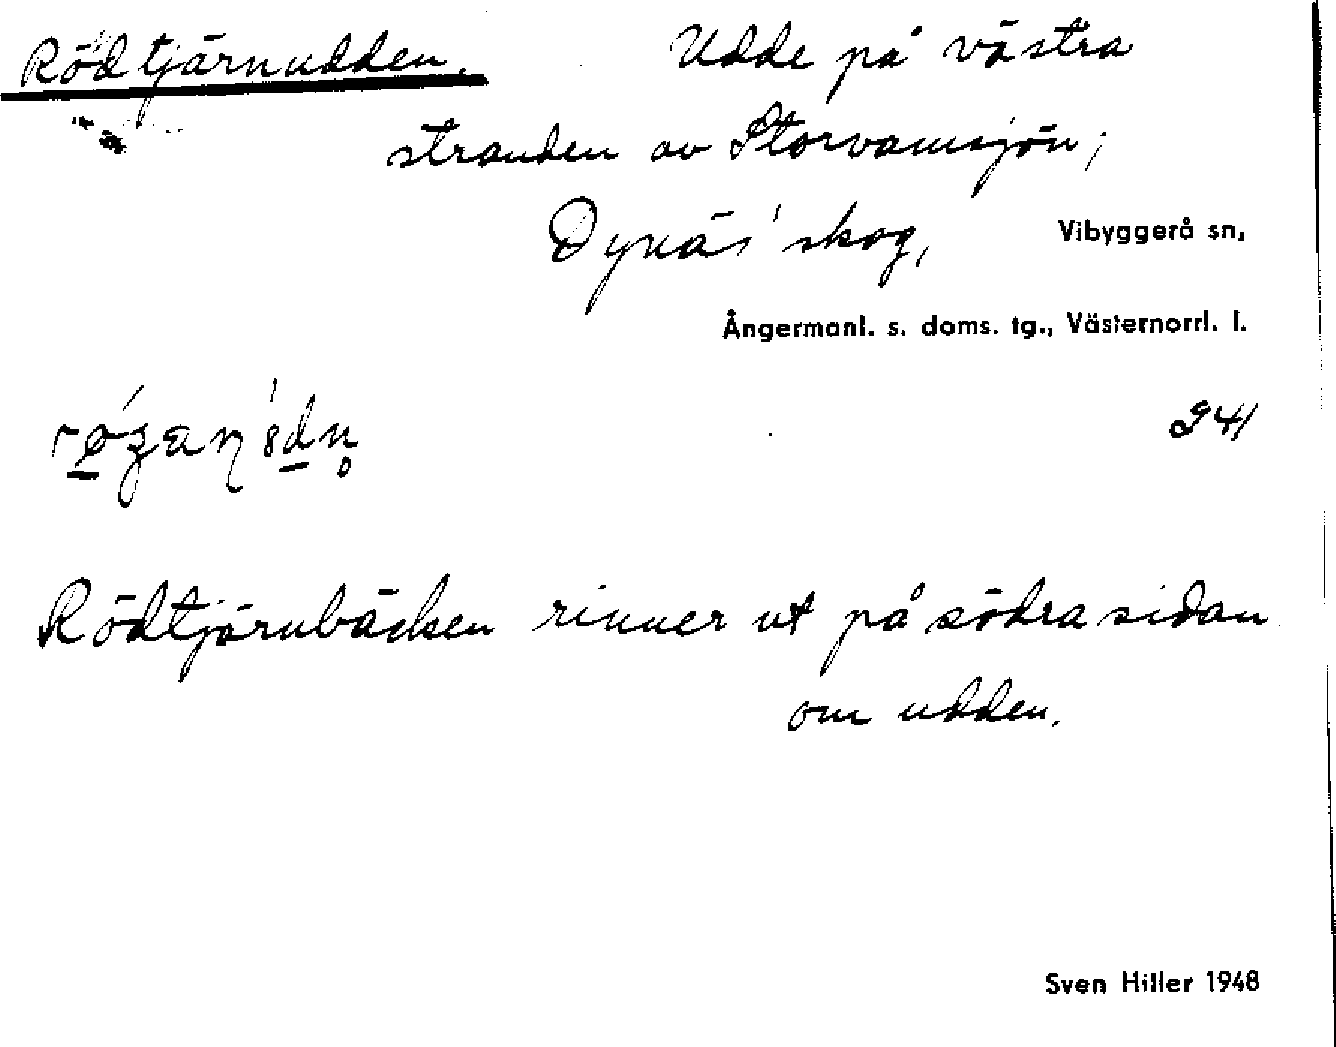 Rödtjärnudden. Udde på västra
stranden av Storvamsjön;
Dynäs' skog, Vibyggerå sn,
Ångermanl. s. doms. tg., Västernorrl. l.
241
Rödtjärnbäcken rinner ut på södra sidan
om udden.
Sven Hiller 1948